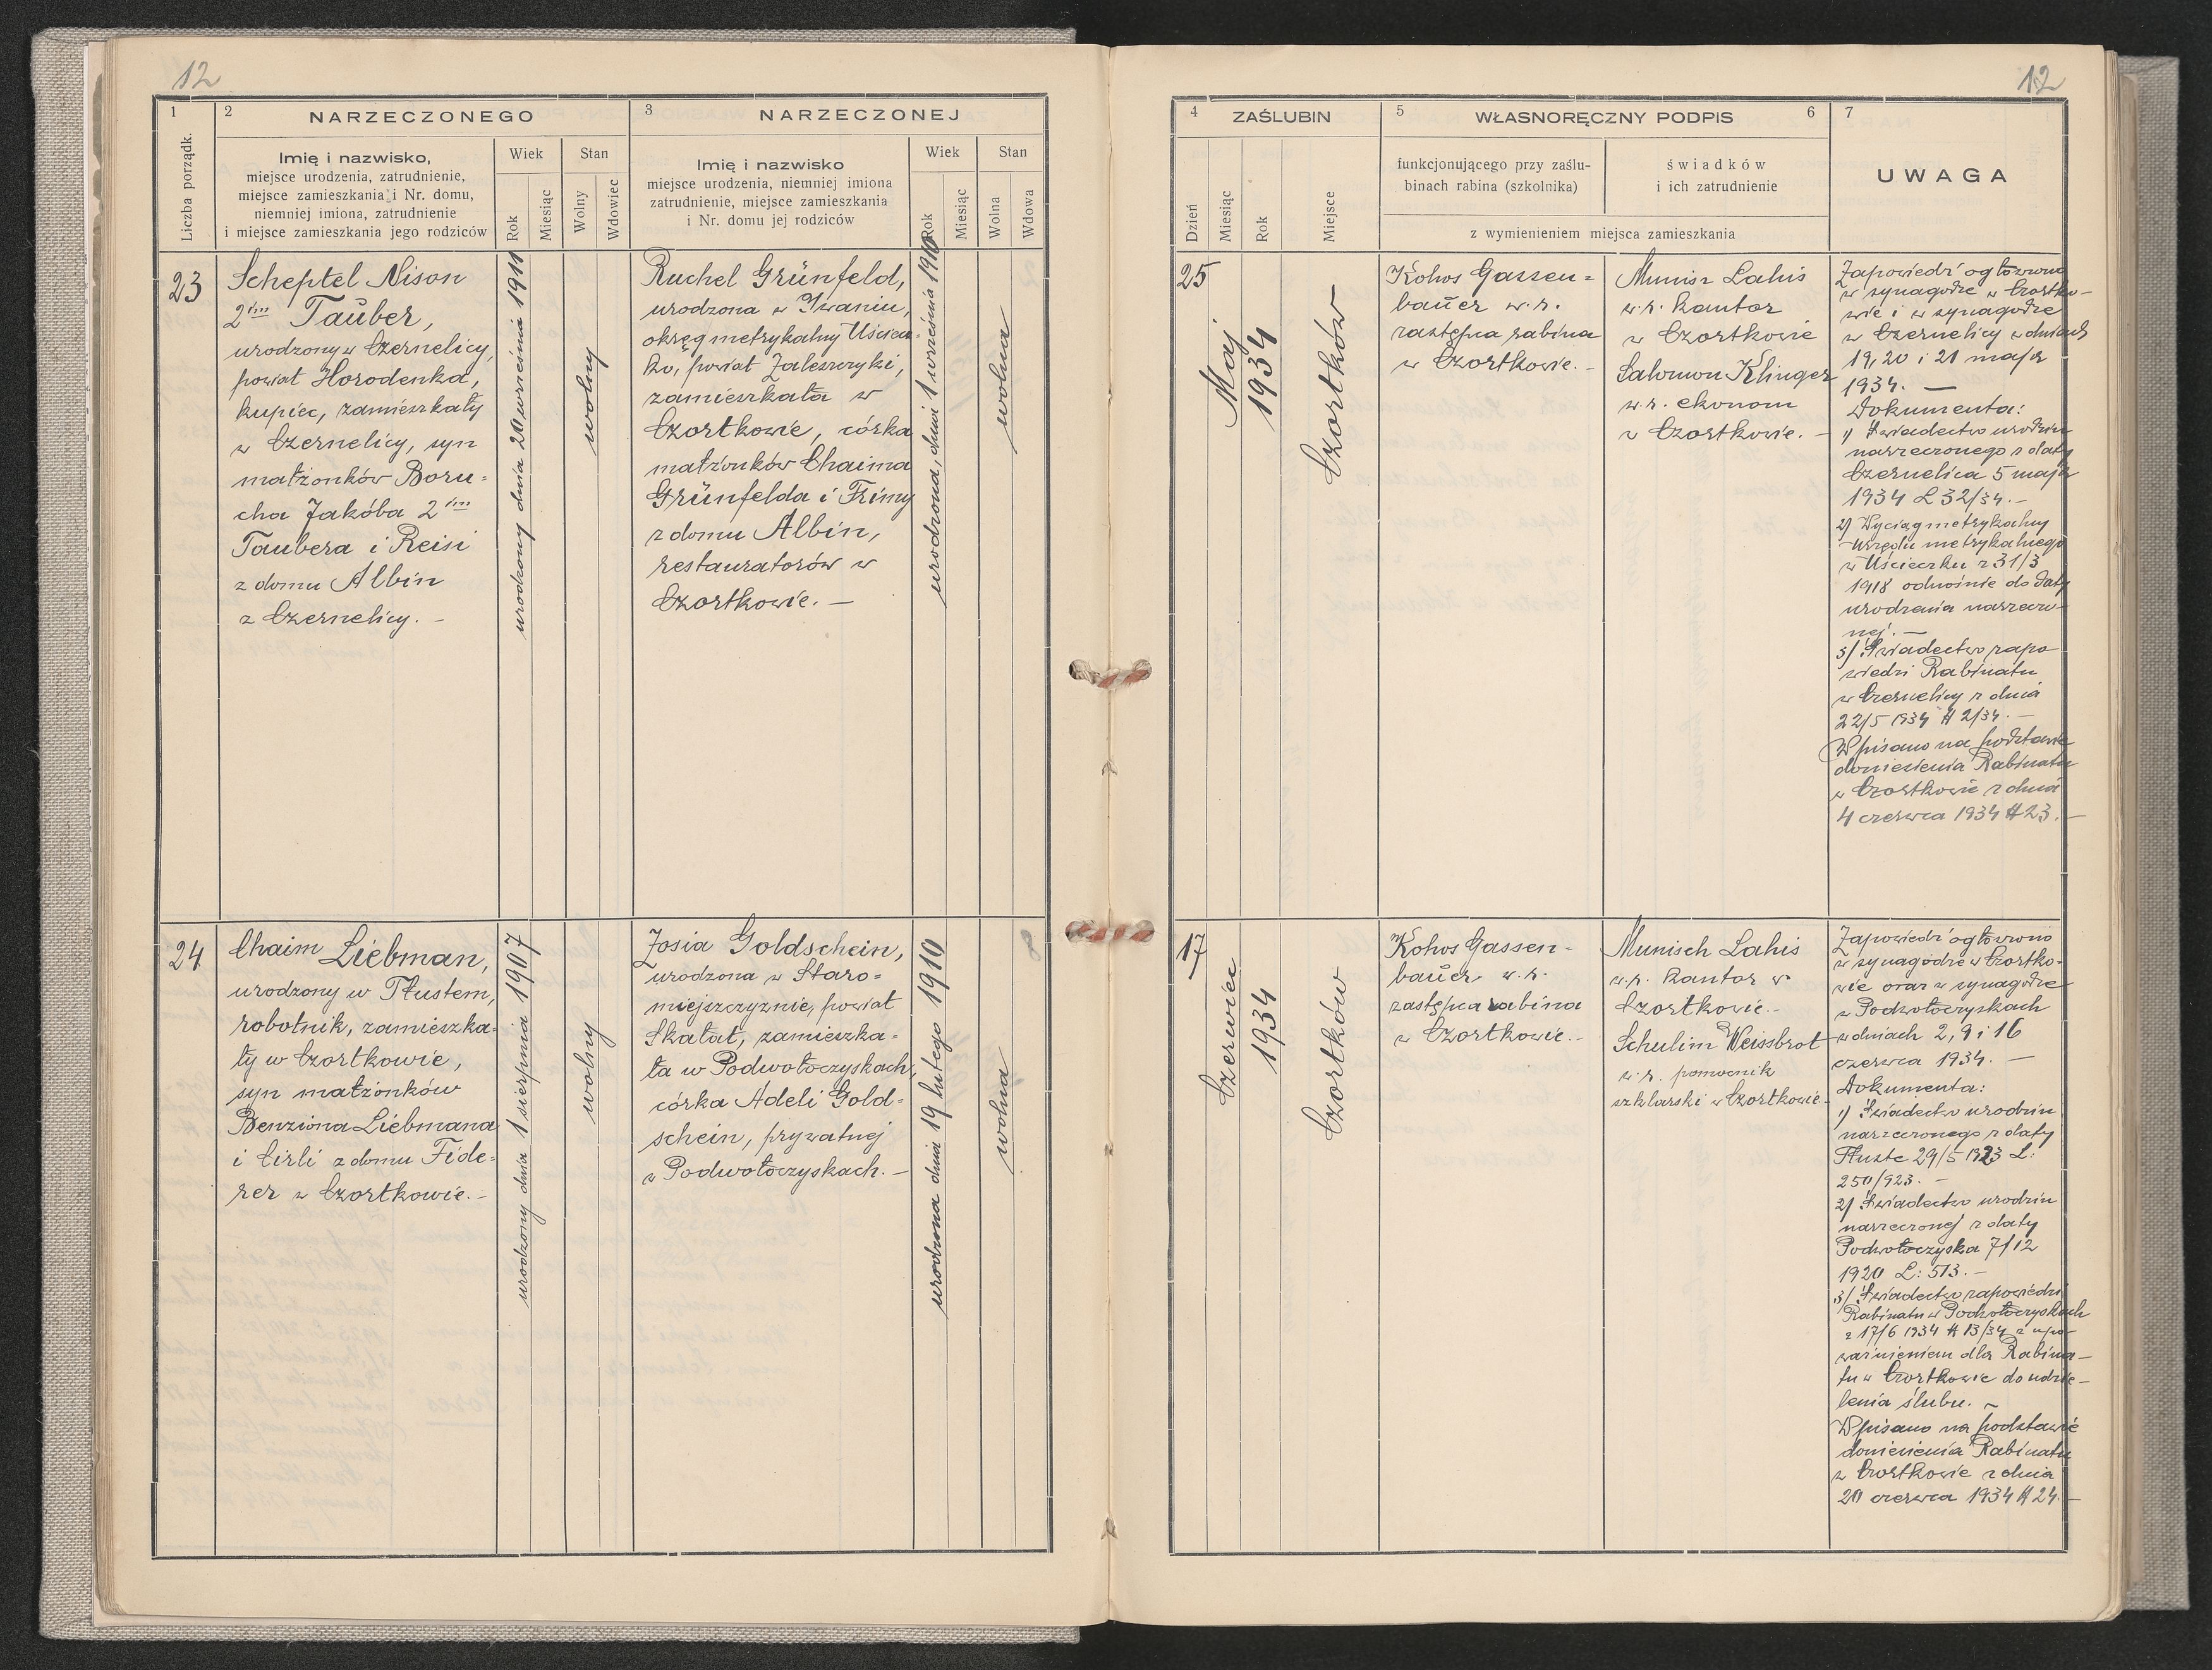 12
1
2 NARZECZONEGO
3 NARZECZONEJ
Liczba porządk.
Imię i nazwisko,
miejsce urodzenia, zatrudnienie,
miejsce zamieszkania i Nr. domu,
niemniej imiona, zatrudnienie
i miejsce zamieszkania jego rodziców
Wiek
Rok
Miesiąc
Stan
Wolny
Wdowiec
Imię i nazwisko
miejsce urodzenia, niemniej imiona
zatrudnienie, miejsce zamieszkania
i Nr. domu jej rodziców
Wiek
Rok
Miesiąc
Stan
Wolna
Wdowa
23
Scheptel Nison
2im Tauber,
urodzony w Czernelicy,
powiat Horodenka,
kupiec, zamieszkały
w Czernelicy, syn
małżonków Boru=
cha Jakóba 2im
Taubera i Reisi
z domu Albin
z Czernelicy. -
urodzony dnia 20 września 1911
wolny
Ruchel Grünfeld,
urodzona w Iwaniu,
okręg metrykalny Uściecz=
ko, powiat Zaleszczyki,
zamieszkała w
Czortkowie, córka
małżonków Chaima
Grünfelda i Frimy
z domu Albin,
restauratorów w
Czortkowie. —
urodzona, dnia 1 września 1910
wolna
24
Chaim Liebman,
urodzony w Tłustem,
robotnik, zamieszka=
ły w Czortkowie,
syn małżonków
Benziona Liebmana
i Cirli z domu Fide=
rer w Czortkowie. -
urodzony dnia 1 sierpnia 1907
wolny
Zosia Goldschein,
urodzona w Staro=
miejszczyznie, powiat
Skałat, zamieszka=
ła w Podwołoczyskach,
córka Adeli Gold=
schein, prywatnej
w Podwołoczyskach. -
urodzona dnia 19 lutego 1910
wolna
8
12
4 ZAŚLUBIN
5 WŁASNORĘCZNY PODPIS 6
7
Dzień
Miesiąc
Rok
Miejsce
funkcjonującego przy zaślu-
binach rabina (szkolnika)
świadków
i ich zatrudnienie
z wymienieniem miejsca zamieszkania
UWAGA
25
Maj
1934
Czortków
Kohos Gassen=
bauer w.r.
zastępca rabina
w Czortkowie. -
Munisz Lahis
w.r. kantor
w Czortkowie
Salomon Klinger
w.r. ekonom
w Czortkowie. -
Zapowiedź ogłoszono
w synagodze w Czortko-
wie i w synagodze
w Czernelicy w dniach
19, 20 i 21 maja
1934. —
Dokumenta:
1) Świadectwo urodzin
narzeczonego z daty
Czernelica 5 maja
1934 L 32/34. -
2) Wyciąg metrykalny
Urzędu metrykalnego
w Uścieczku z 31/3
1918 odnośnie do daty
urodzenia narzeczo-
nej. —
3) Świadectwo zapo
wiedzi Rabinatu
w Czernelicy z dnia
22/5 1934 # 2/34. —
Wpisano na podstawie
doniesienia Rabinatu
w Czortkowie z dnia
4 czerwca 1934 # 23. —
17
Czerwiec
1934
Czortków
Kohos Gassen-
bauer w.r.
zastępca rabina
w Czortkowie. -
Munisch Lahis
w.r. kantor w
Czortkowie. -
Schulim Weissbrot
w.r. pomocnik
szklarski w Czortkowie -
Zapowiedź ogłoszono
w synagodze w Czortko-
wie oraz w synagodze
w Podwołoczyskach
w dniach 2, 9 i 16
czerwca 1934. —
Dokumenta:
1) Świadectwo urodzin
narzeczonego z daty
Tłuste 29/5 1923 L:
250/923. -
2) Świadectwo urodzin
narzeczonej z daty
Podwołoczyska 7/12
1920 L: 513. -
3) Świadectwo zapowiedzi
Rabinatu w Podwołoczyskach
z 17/6 1934 # 13/34 z upo-
ważnieniem dla Rabina-
tu w Czortkowie do udzie-
lenia ślubu. -
Wpisano na podstawie
doniesienia Rabinatu
w Czortkowie z dnia
20 czerwca 1934 # 24. -